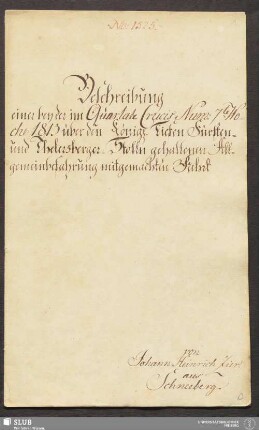 Beschreibung
einer bey der im Quartale Crucis Num: 7te Wo
che 1815 über den Königl. Tiefen Fürsten-
und Thelersberger Stolln gehaltenen All
gemeinbefahrung mitgemachten Fahrt
von
Johann Heinrich
aus
Schneeberg.
SLUB